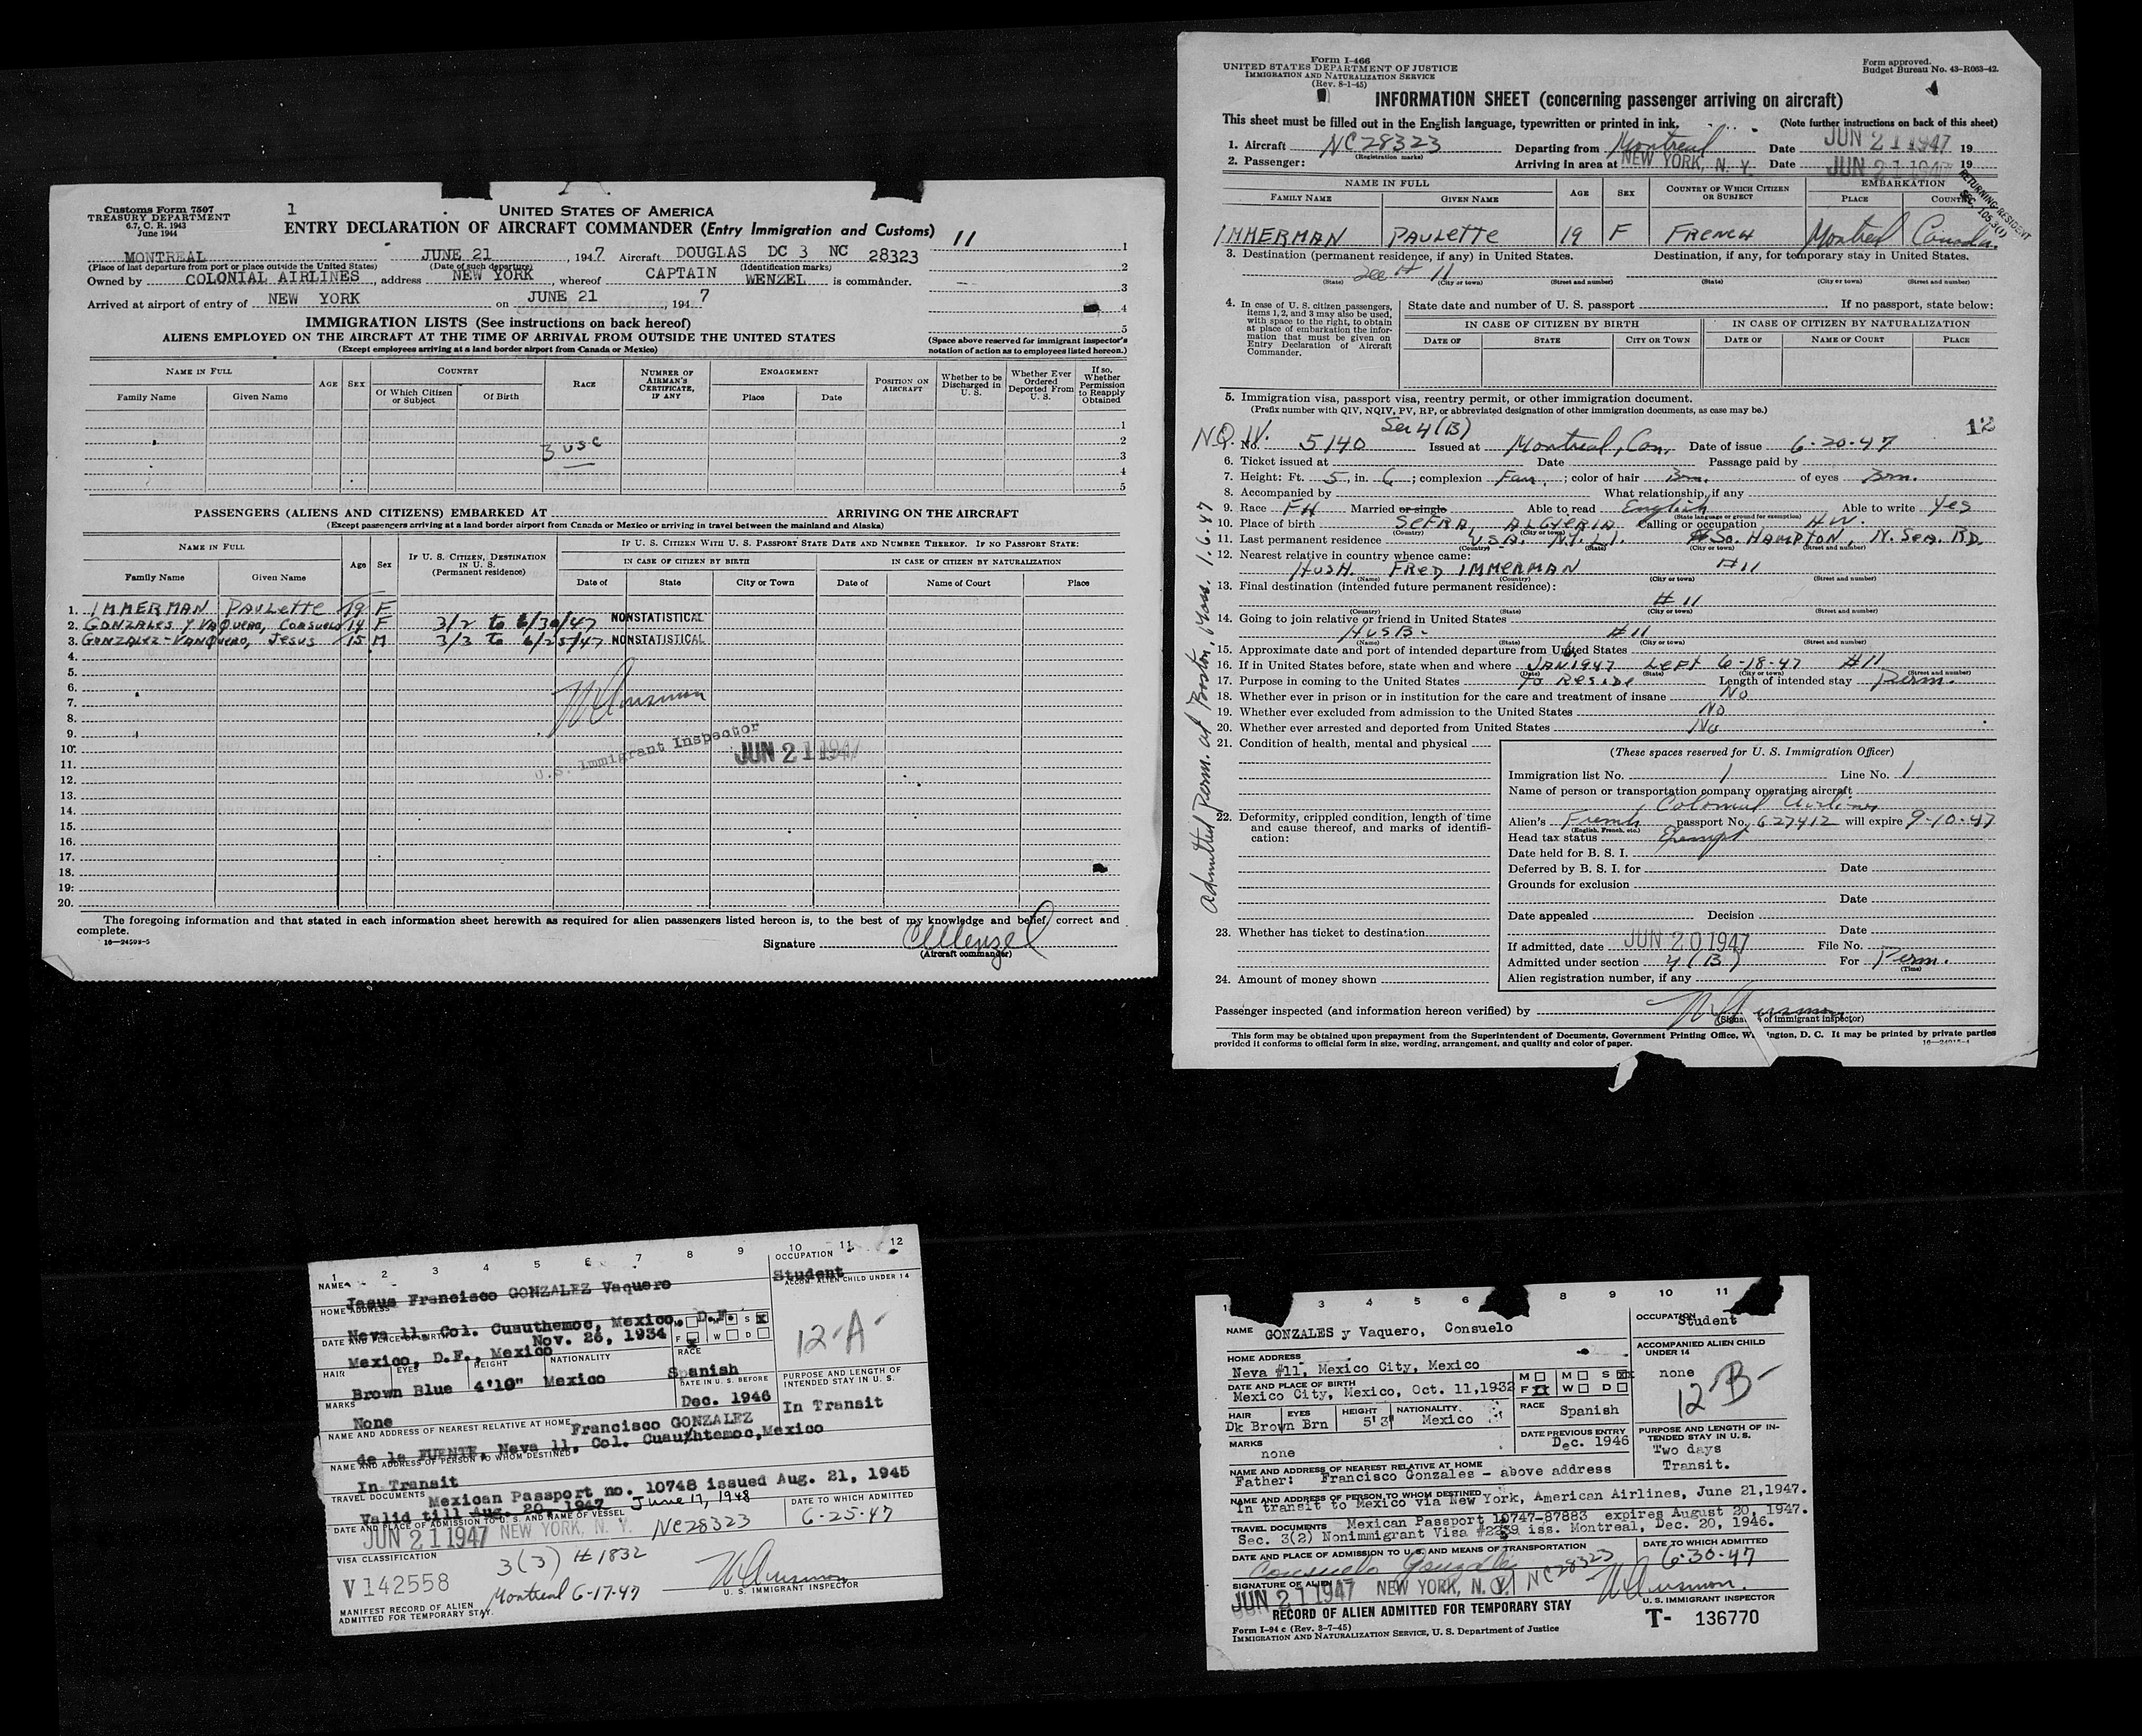 Customs Form 7507
TREASURY DEPARTMENT
6.7, C. R. 1943
June 1944
1
UNITED STATES OF AMERICA
ENTRY DECLARATION OF AIRCRAFT COMMANDER (Entry Immigration and Customs)
11
MONTREAL JUNE 21, 1947 Aircraft DOUGLAS DC 3 NC 28323
(Place of last departure from port or place outside the United States) (Date of such departure) (Identification marks)
Owned by COLONIAL AIRLINES, address NEW YORK, whereof CAPTAIN WENZEL is commander.
Arrived at airport of entry of NEW YORK on JUNE 21, 1947
1
2
3
4
5
IMMIGRATION LISTS (See instructions on back hereof)
ALIENS EMPLOYED ON THE AIRCRAFT AT THE TIME OF ARRIVAL FROM OUTSIDE THE UNITED STATES
(Except employees arriving at a land border airport from Canada or Mexico)
(Space above reserved for immigrant inspector's notation of action as to employees listed hereon.)
NAME IN FULL
Family Name Given Name
AGE SEX
COUNTRY
Of Which Citizen or Subject Of Birth
RACE
NUMBER OF AIRMAN'S CERTIFICATE, IF ANY
ENGAGEMENT
Place Date
POSITION ON AIRCRAFT
Whether to be Discharged in U. S.
Whether Ever Ordered Deported From U. S.
If so, Whether Permission to Reapply Obtained
1
2
3 USC
3
4
5
PASSENGERS (ALIENS AND CITIZENS) EMBARKED AT ARRIVING ON THE AIRCRAFT
(Except passengers arriving at a land border airport from Canada or Mexico or arriving in travel between the mainland and Alaska)
NAME IN FULL
Family Name Given Name
Age Sex
IF U. S. CITIZEN, DESTINATION IN U. S. (Permanent residence)
IF U. S. CITIZEN WITH U. S. PASSPORT STATE DATE AND NUMBER THEREOF. IF NO PASSPORT STATE:
IN CASE OF CITIZEN BY BIRTH IN CASE OF CITIZEN BY NATURALIZATION
Date of State City or Town Date of Name of Court Place
1. IMMERMAN PAULETTE 19 F
2. GONZALES Y VAQUERO, CONSUELO 14 F 3/2 to 6/30/47 NONSTATISTICAL
3. GONZALEZ-VANQUERO, JESUS 15 M 3/3 to 6/25/47 NONSTATISTICAL
4.
5.
6.
7.
8.
9.
10.
11.
12.
13.
14.
15.
16.
17.
18.
19.
20.
U.S. Immigrant Inspector
JUN 21 1947
The foregoing information and that stated in each information sheet herewith as required for alien passengers listed hereon is, to the best of my knowledge and belief, correct and
complete.
16—24593-5
Signature
(Aircraft commander)
Form I-466
UNITED STATES DEPARTMENT OF JUSTICE
IMMIGRATION AND NATURALIZATION SERVICE
(Rev. 8-1-45)
Form approved.
Budget Bureau No. 43-R063-42.
INFORMATION SHEET (concerning passenger arriving on aircraft)
This sheet must be filled out in the English language, typewritten or printed in ink. (Note further instructions on back of this sheet)
1. Aircraft NC28323 Departing from Montreal Date JUN 21 1947 19
(Registration marks)
2. Passenger: Arriving in area at NEW YORK, N. Y. Date JUN 21 1947 19
RETURNING RESIDENT
SEC. 105.3(1)
NAME IN FULL
FAMILY NAME GIVEN NAME
AGE SEX
COUNTRY OF WHICH CITIZEN OR SUBJECT
EMBARKATION
PLACE COUNTRY
IMMERMAN PAULETTE 19 F FRENCH Montreal Canada.
3. Destination (permanent residence, if any) in United States. Destination, if any, for temporary stay in United States.
See # 11
(State) (City or town) (Street and number) (State) (City or town) (Street and number)
4. In case of U. S. citizen passengers, items 1, 2, and 3 may also be used, with space to the right, to obtain at place of embarkation the information that must be given on Entry Declaration of Aircraft Commander.
State date and number of U. S. passport If no passport, state below:
IN CASE OF CITIZEN BY BIRTH IN CASE OF CITIZEN BY NATURALIZATION
DATE OF STATE CITY OR TOWN DATE OF NAME OF COURT PLACE
5. Immigration visa, passport visa, reentry permit, or other immigration document.
(Prefix number with QIV, NQIV, PV, RP, or abbreviated designation of other immigration documents, as case may be.)
Sec 4(B)
12
N.Q. IV. No. 5140 Issued at Montreal, Can. Date of issue 6-20-47
6. Ticket issued at Date Passage paid by
7. Height: Ft. 5, in. 6; complexion Fair; color of hair Brn. of eyes Brn.
8. Accompanied by What relationship, if any
9. Race FH Married or single Able to read English Able to write Yes
(State language or ground for exemption)
10. Place of birth SEFRA, ALGERIA Calling or occupation H.W.
(Country) (City or town)
11. Last permanent residence U.S.A. N.Y. L.I. So. HAMPTON, N. SEA. RD.
(Country) (State) (City or town) (Street and number)
12. Nearest relative in country whence came:
HUSH. FRED IMMERMAN #11
(Name) (Country) (City or town) (Street and number)
13. Final destination (intended future permanent residence):
#11
(Country) (State) (City or town) (Street and number)
14. Going to join relative or friend in United States
HUSB. #11
(Name) (State) (City or town) (Street and number)
15. Approximate date and port of intended departure from United States
16. If in United States before, state when and where JAN. 1947 LEFT 6-18-47 #11
(Date) (State) (City or town) (Street and number)
17. Purpose in coming to the United States To Reside Length of intended stay Perm.
18. Whether ever in prison or in institution for the care and treatment of insane No
19. Whether ever excluded from admission to the United States No
20. Whether ever arrested and deported from United States No
21. Condition of health, mental and physical
22. Deformity, crippled condition, length of time and cause thereof, and marks of identification:
23. Whether has ticket to destination
24. Amount of money shown
Admitted perm. at Boston, Mass. 1.6.47
(These spaces reserved for U. S. Immigration Officer)
Immigration list No. 1 Line No. 1
Name of person or transportation company operating aircraft
Colonial Airlines
Alien's French passport No. 627412 will expire 9-10-47
(English, French, etc.)
Head tax status Exempt
Date held for B. S. I.
Deferred by B. S. I. for Date
Grounds for exclusion
Date
Date appealed Decision
Date
If admitted, date JUN 20 1947 File No.
Admitted under section 4(B) For Perm.
(Time)
Alien registration number, if any
Passenger inspected (and information hereon verified) by
(Signa of immigrant inspector)
This form may be obtained upon prepayment from the Superintendent of Documents, Government Printing Office, Wa ington, D. C. It may be printed by private parties
provided it conforms to official form in size, wording, arrangement, and quality and color of paper.
1 2 3 4 5 6 7 8 9 10 11 12
NAME
Jesus Francisco GONZALEZ Vaquero
OCCUPATION
Student
ACCOM. ALIEN CHILD UNDER 14
12-A-
HOME ADDRESS
Neva 11, Col. Cuauthemoc, Mexico, D.F.
M M S X
F W D
DATE AND PLACE OF BIRTH
Nov. 26, 1934
Mexico, D.F., Mexico
HAIR EYES HEIGHT NATIONALITY RACE
Brown Blue 4'10" Mexico Spanish
DATE IN U. S. BEFORE
Dec. 1946
PURPOSE AND LENGTH OF INTENDED STAY IN U. S.
In Transit
MARKS
None
NAME AND ADDRESS OF NEAREST RELATIVE AT HOME
Francisco GONZALEZ
de la FUENTE, Neva 11, Col. Cuauhtemoc, Mexico
NAME AND ADDRESS OF PERSON TO WHOM DESTINED
In Transit
TRAVEL DOCUMENTS
Mexican Passport no. 10748 issued Aug. 21, 1945
Valid till Aug. 20, 1947 June 17, 1948
DATE AND PLACE OF ADMISSION TO U. S. AND NAME OF VESSEL
JUN 21 1947 NEW YORK, N. Y. NC28323
DATE TO WHICH ADMITTED
6-25-47
VISA CLASSIFICATION
3(3) #1832
V142558
Montreal 6-17-47
U. S. IMMIGRANT INSPECTOR
MANIFEST RECORD OF ALIEN
ADMITTED FOR TEMPORARY STAY.
1 3 4 5 6 8 9 10 11
NAME GONZALES y Vaquero, Consuelo
OCCUPATION
Student
HOME ADDRESS
Neva #11, Mexico City, Mexico
ACCOMPANIED ALIEN CHILD UNDER 14
none
12-B-
DATE AND PLACE OF BIRTH
Mexico City, Mexico, Oct. 11, 1932
M M S X
F X W D
HAIR EYES HEIGHT NATIONALITY RACE
Dk Brown Brn 5'3" Mexico Spanish
MARKS
none
DATE PREVIOUS ENTRY
Dec. 1946
PURPOSE AND LENGTH OF INTENDED STAY IN U.S.
Two days
Transit.
NAME AND ADDRESS OF NEAREST RELATIVE AT HOME
Father: Francisco Gonzales - above address
NAME AND ADDRESS OF PERSON TO WHOM DESTINED
In transit to Mexico via New York, American Airlines, June 21, 1947.
TRAVEL DOCUMENTS
Mexican Passport 10747-87883 expires August 20, 1947.
Sec. 3(2) Nonimmigrant Visa #2239 iss. Montreal, Dec. 20, 1946.
DATE AND PLACE OF ADMISSION TO U.S. AND MEANS OF TRANSPORTATION
Consuelo Gonzalez
DATE TO WHICH ADMITTED
6-30-47
SIGNATURE OF ALIEN
JUN 21 1947 NEW YORK, N. Y. NC28323
U. S. IMMIGRANT INSPECTOR
RECORD OF ALIEN ADMITTED FOR TEMPORARY STAY
T- 136770
Form I-94 c (Rev. 3-7-45)
IMMIGRATION AND NATURALIZATION SERVICE, U. S. Department of Justice